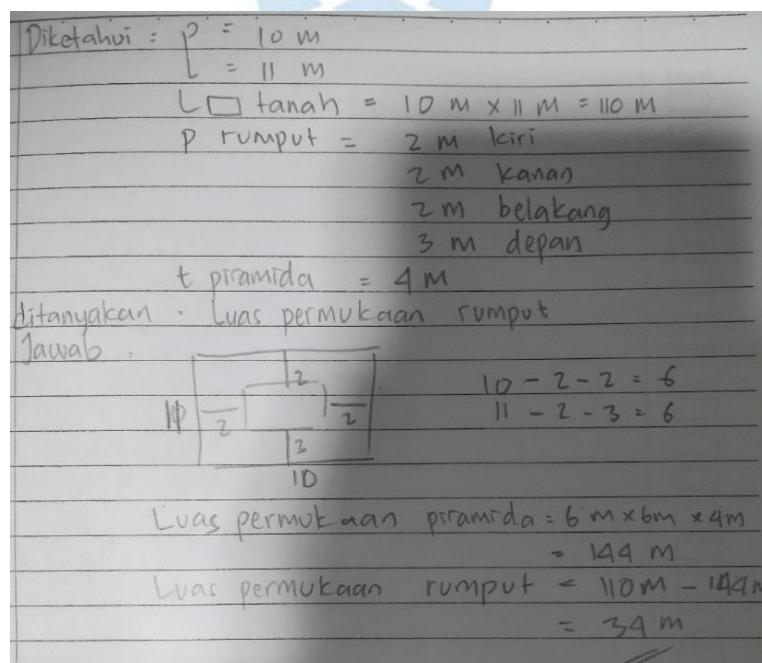 Diketahui : p = 10 m
l = 11 m
L □ tanah = 10 m x 11 m = 110 m
P rumput = 2 m kiri
2 m kanan
2 m belakang
3 m depan
t piramida = 4 m
ditanyakan . Luas permukaan rumput
Jawab .
2
10 - 2 - 2 = 6
11 2 2
11 - 2 - 3 = 6
3
10
Luas permukaan piramida = 6 m x 6m x 4m
= 144 m
Luas permukaan rumput = 110m - 144m
= 34 m